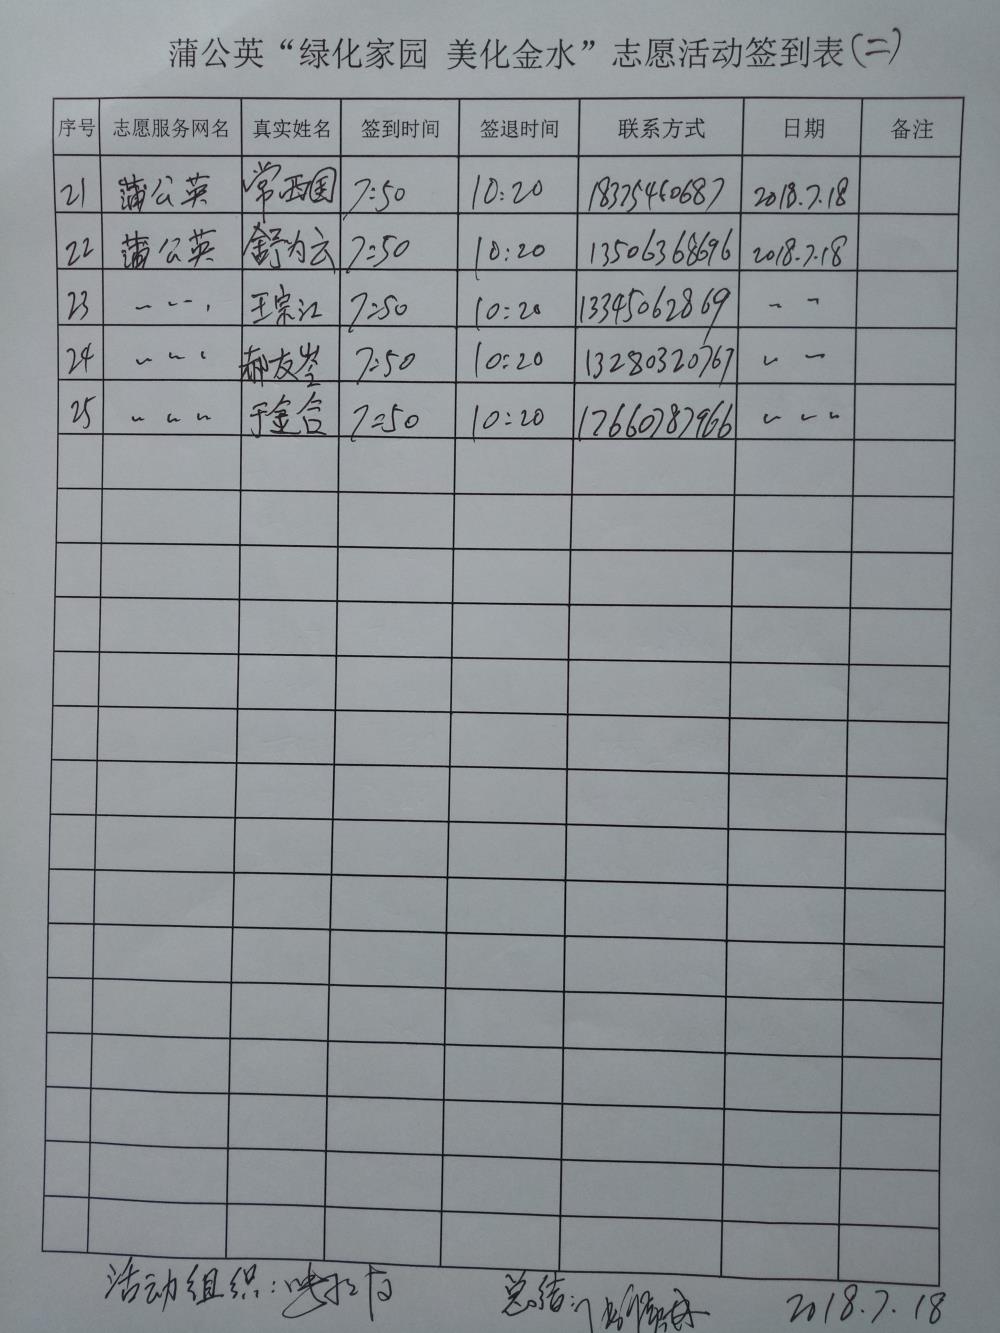 蒲公英“绿化家园 美化金水”志愿活动签到表(二)
序号 志愿服务网名 真实姓名 签到时间 签退时间 联系方式 日期 备注
21 蒲公英 常西国 7:50 10:20 18375460687 2018.7.18
22 蒲公英 舒为云 7:50 10:20 13506368696 2018.7.18
23 〃 〃 〃 王宗江 7:50 10:20 13345062869 〃 〃
24 〃 〃 〃 郝友岑 7:50 10:20 13280320767 〃 〃
25 〃 〃 〃 于金合 7:50 10:20 17660787966 〃 〃 〃
活动组织: 总结: 2018.7.18